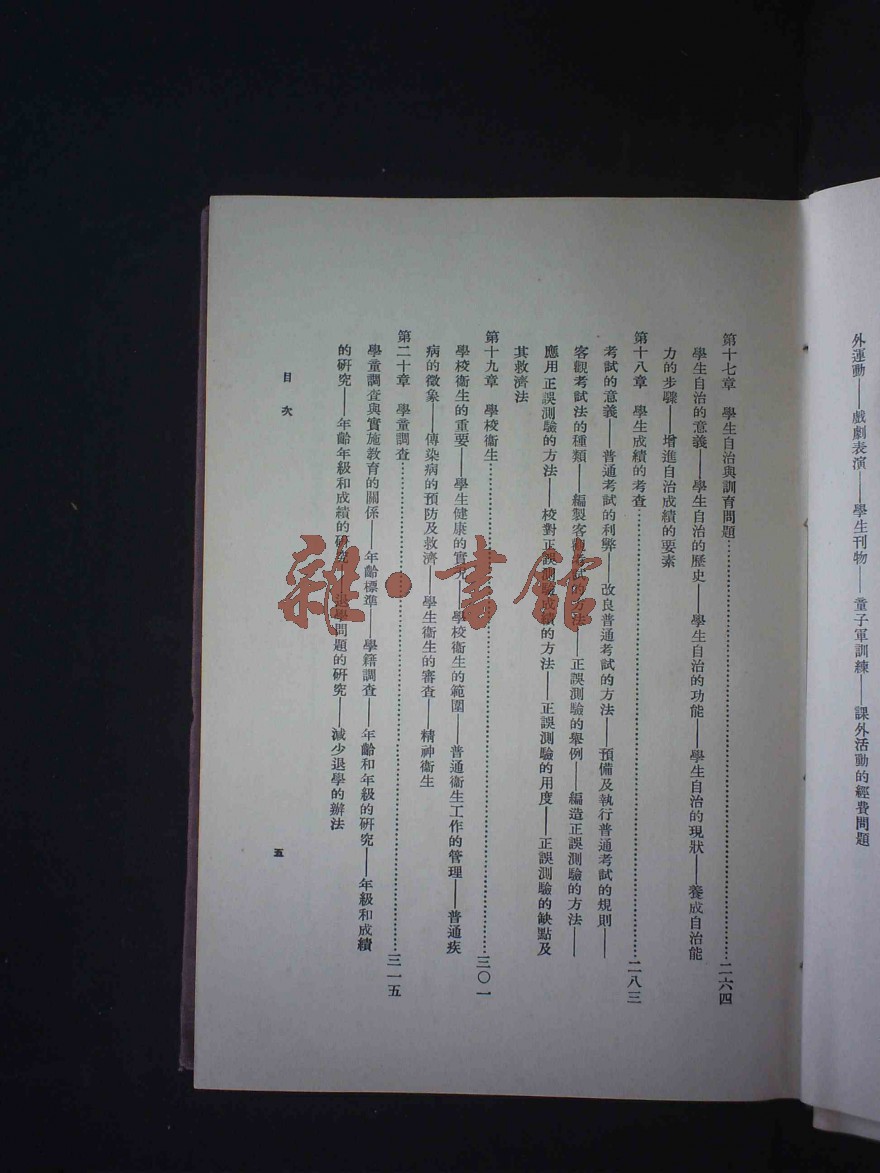 外運動——戲劇表演——學生刊物——童子軍訓練——課外活動的經費問題
第十七章　學生自治與訓育問題……二六四
學生自治的意義——學生自治的歷史——學生自治的功能——學生自治的現狀——養成自治能
力的步驟——增進自治成績的要素
第十八章　學生成績的考查……二八三
考試的意義——普通考試的利弊——改良普通考試的方法——預備及執行普通考試的規則——
客觀考試法的種類——編製客觀考試的方法——正誤測驗的舉例——編造正誤測驗的方法——
應用正誤測驗的方法——校對正誤測驗成績的方法——正誤測驗的用度——正誤測驗的缺點及
其救濟法
第十九章　學校衞生……三〇一
學校衞生的重要——學生健康的實况——學校衞生的範圍——普通衞生工作的管理——普通疾
病的徵象——傳染病的預防及救濟——學生衞生的審查——精神衞生
第二十章　學童調查……三一五
學童調查與實施教育的關係——年齡標準——學籍調查——年齡和年級的研究——年級和成績
的研究——年齡年級和成績的研究——退學問題的研究——減少退學的辦法
目次
五
雜·書館